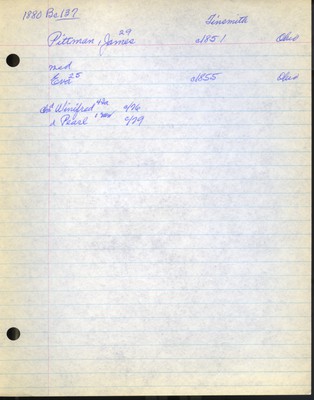 1880 Bo.137
Tinsmith
Pittman, James 29 c1851 Ohio
md
Eva 25 c1855 Ohio
ch Winifred 4 c/76
& Pearl 1 c/79